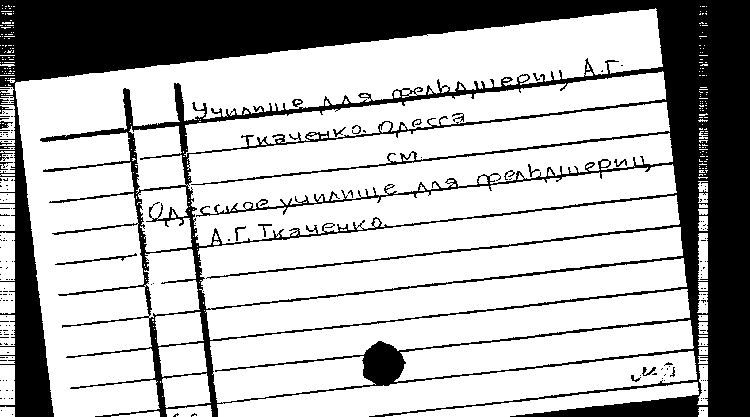 Училище для фельдшериц А.Г.
Ткаченко. Одесса
см
Одесское училище для фельдшериц
А.Г. Ткаченко.